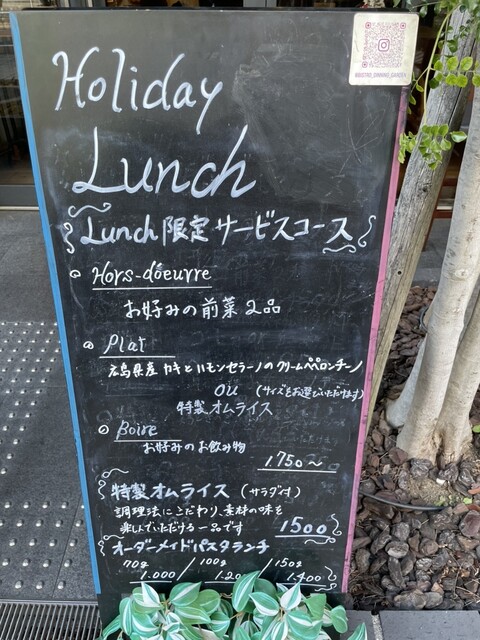 Holiday
Lunch
Lunch限定サービスコース
Hors-dóeurre
お好みの前菜2品
Plat
広島県産 カキとハモンセラーノのクリームペペロンチーノ
ou (サイズをお選びいただけます)
特製オムライス
Boire
お好みのお飲み物
1.750〜
特製オムライス (サラダ付)
調理法にこだわり、素材の味を
楽しんでいただける一品です
1500
オーダーメイドパスタランチ
70g 100g 150g
1.000 / 1.200 / 1.400